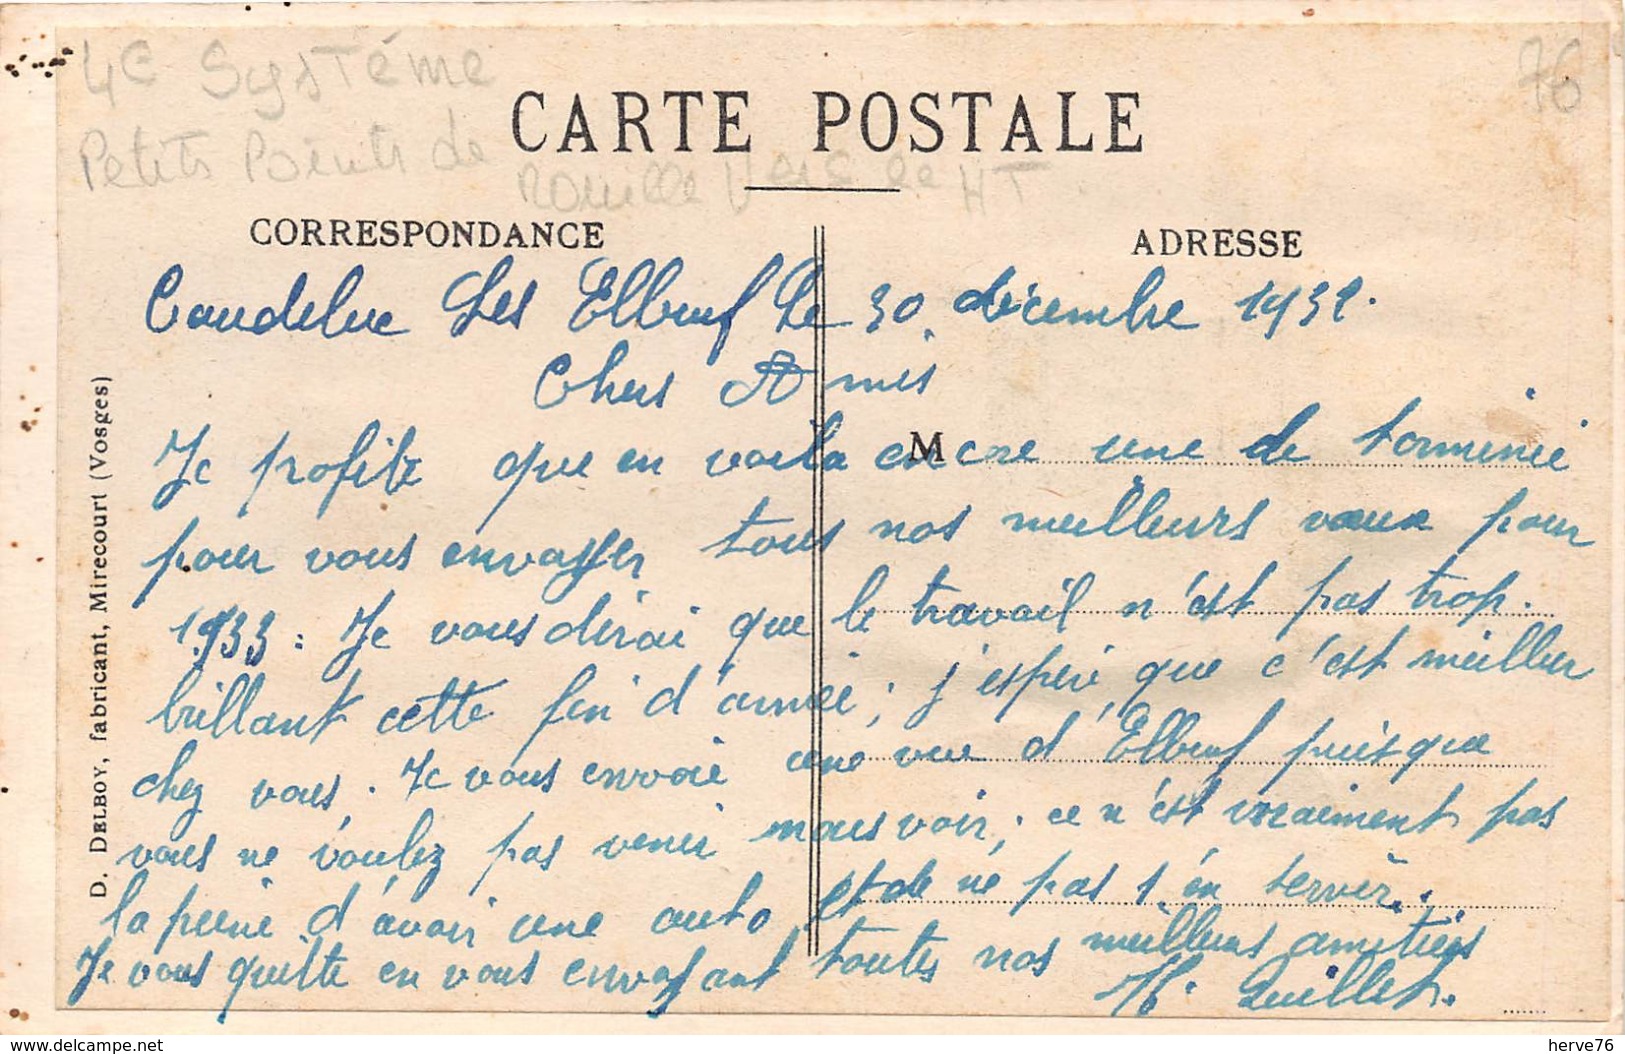 4e Système
Petits Points de
Rouille Vers le HT.
76
CARTE POSTALE
CORRESPONDANCE
ADRESSE
Caudebec Les Elbeuf Le 30 décembre 1932.
Chers Amis
M
Je profite que en voila encore une de terminié
pour vous envoyer tous nos meilleurs vœux pour
1933 : Je vous dirai que le travail n'est pas trop.
brillant cette fin d'année ; j'espére que c'est meilleur
chez vous. Je vous envoie une vue d'Elbeuf puisque
vous ne voulez pas venir nous voir ; ce n'est vraiment pas
la peine d'avoir une auto et de ne pas s'en servir.
Je vous quitte en vous envoyant toutes nos meilleurs amitiés
H. Quillet.
D. DELBOY, fabricant, Mirecourt (Vosges)
delcampe.net
herve76